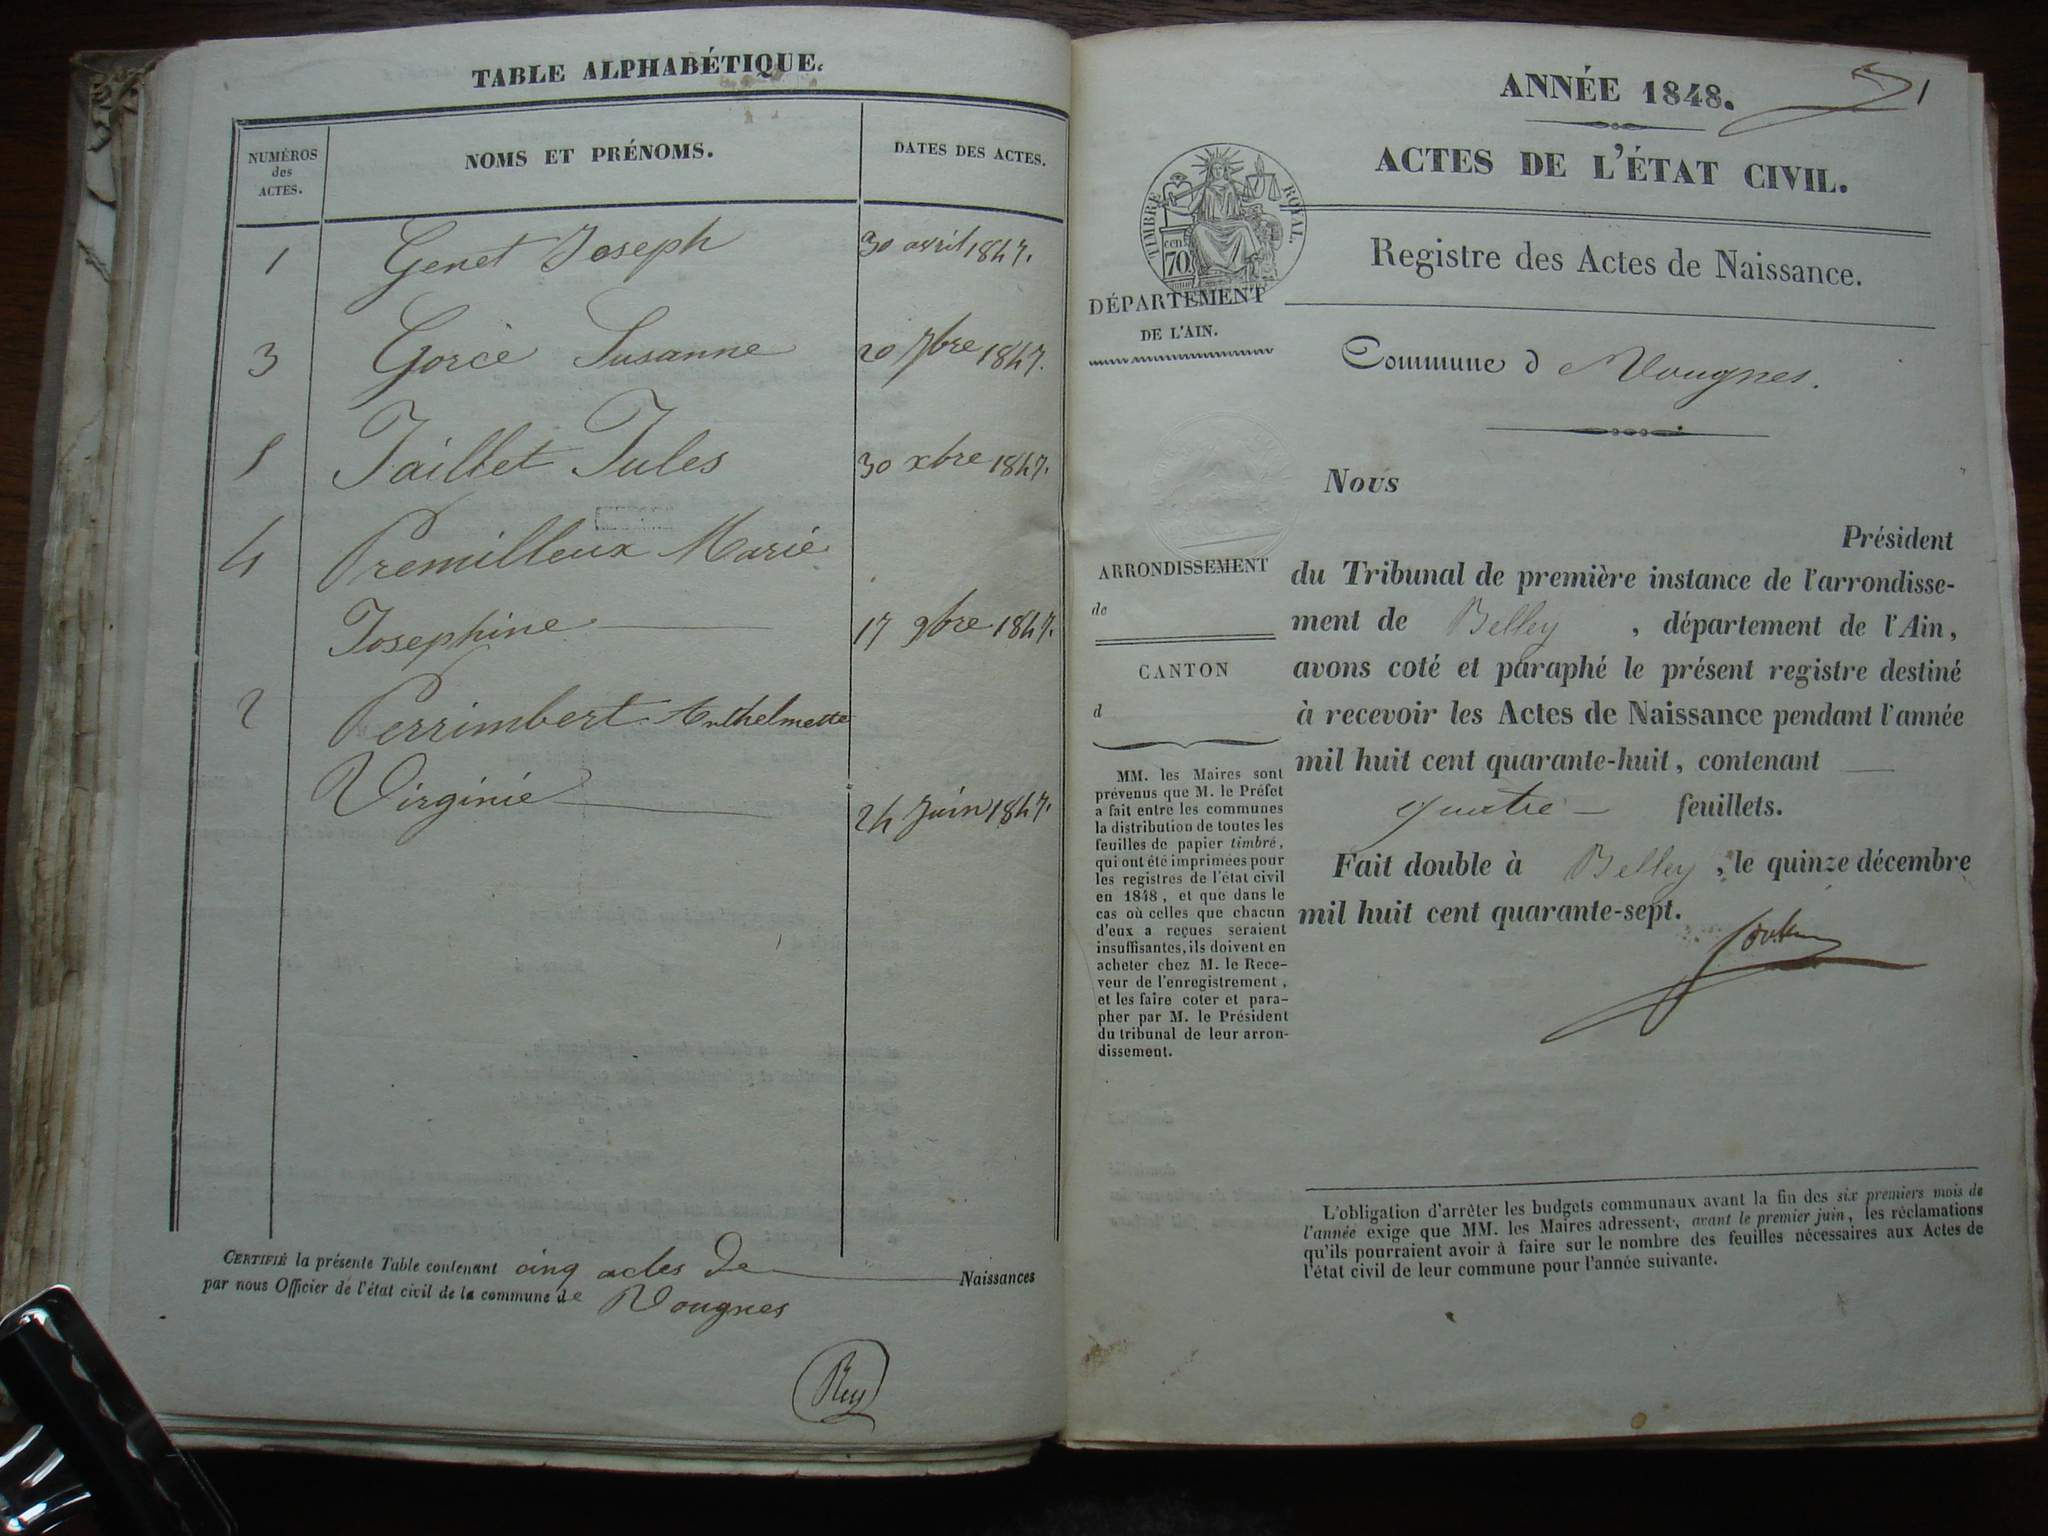 TABLE ALPHABÉTIQUE.
NUMÉROS
des
ACTES.
NOMS ET PRÉNOMS.
DATES DES ACTES.
1 Genet Joseph 30 avril 1847.
3 Gorcé Susanne 20 7bre 1847.
5 Jaillet Jules 30 xbre 1847.
4 Premilleux Marie
Josephine 17 9bre 1847.
2 Perrimbert Anthelmette
Virginie 24 Juin 1847.
CERTIFIÉ la présente Table contenant cinq actes de Naissances
par nous Officier de l'état civil de la commune de Vougnes
Rey
ANNÉE 1848.
1
ACTES DE L'ÉTAT CIVIL.
TIMBRE ROYAL.
cen
70
Registre des Actes de Naissance.
DÉPARTEMENT
DE L'AIN.
Commune d Vougnes.
Nous
Président
ARRONDISSEMENT
de
CANTON
d
du Tribunal de première instance de l'arrondisse-
ment de Belley, département de l'Ain,
avons coté et paraphé le présent registre destiné
à recevoir les Actes de Naissance pendant l'année
mil huit cent quarante-huit, contenant
quatre feuillets.
Fait double à Belley, le quinze décembre
mil huit cent quarante-sept.
MM. les Maires sont
prévenus que M. le Préfet
a fait entre les communes
la distribution de toutes les
feuilles de papier timbré,
qui ont été imprimées pour
les registres de l'état civil
en 1848, et que dans le
cas où celles que chacun
d'eux a reçues seraient
insuffisantes, ils doivent en
acheter chez M. le Rece-
veur de l'enregistrement,
et les faire coter et para-
pher par M. le Président
du tribunal de leur arron-
dissement.
L'obligation d'arrêter les budgets communaux avant la fin des six premiers mois de
l'année exige que MM. les Maires adressent, avant le premier juin, les réclamations
qu'ils pourraient avoir à faire sur le nombre des feuilles nécessaires aux Actes de
l'état civil de leur commune pour l'année suivante.